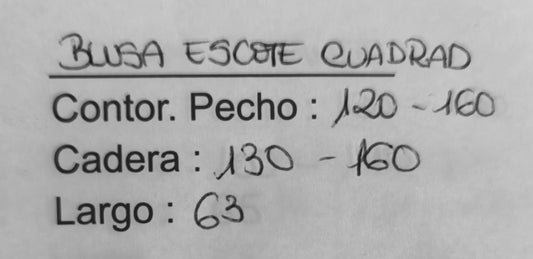 BLUSA ESCOTE CUADRAD
Contor. Pecho : 120 - 160
Cadera : 130 - 160
Largo : 63